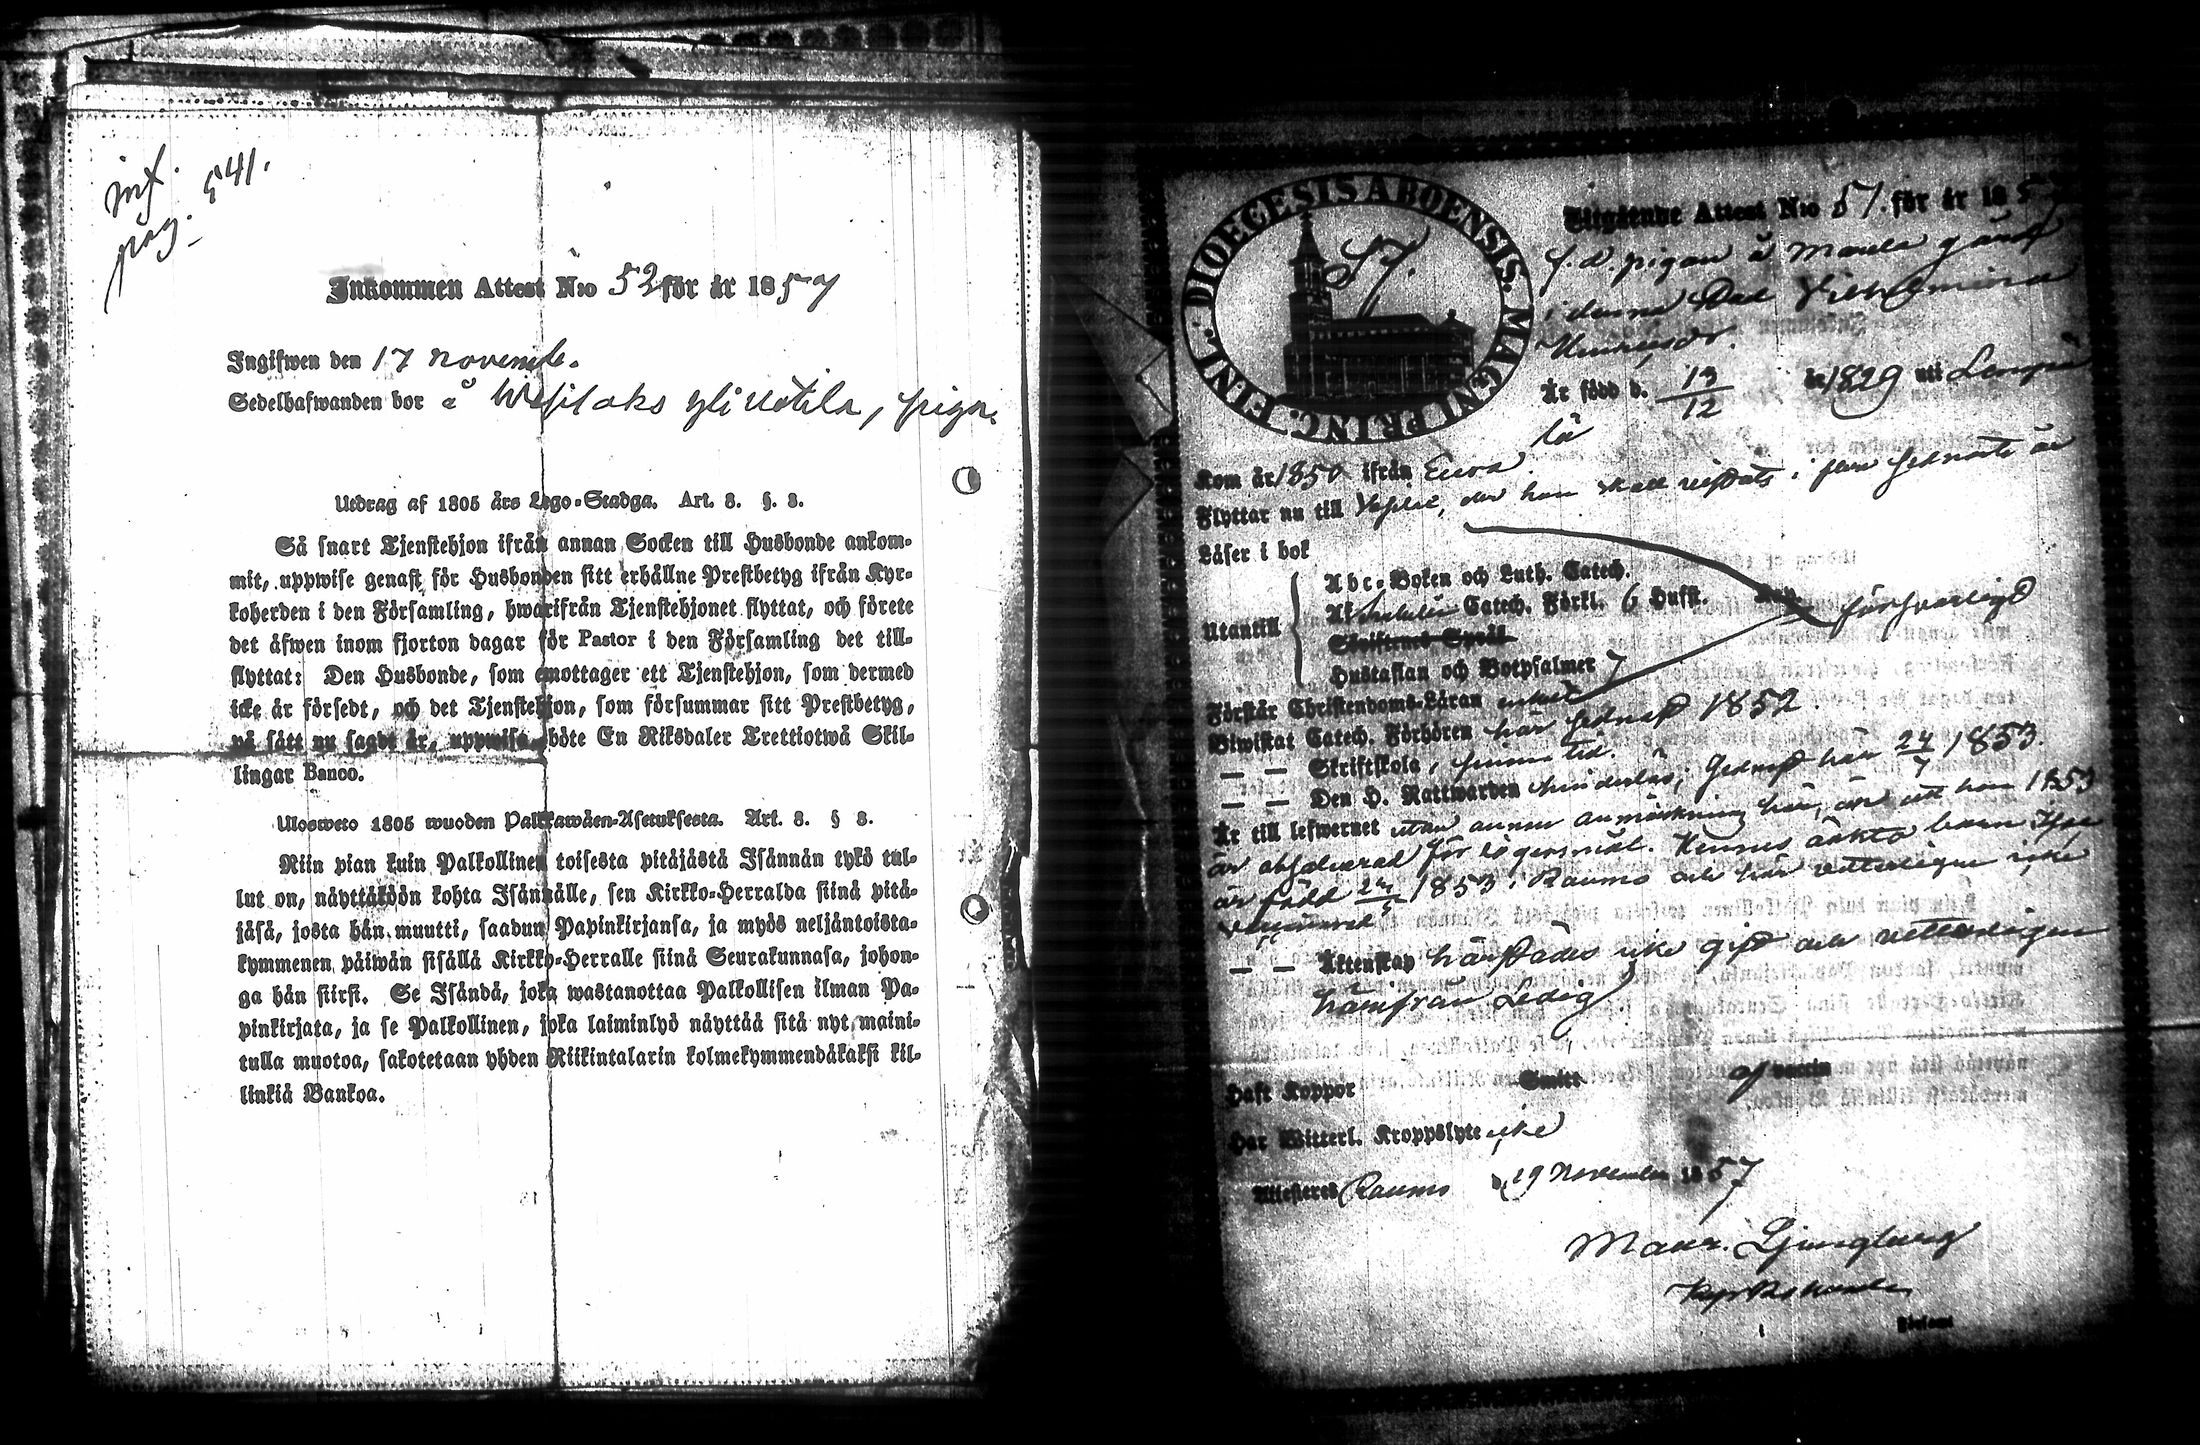 inf.
pag. 541.
Inkommen Attest N:o 52 för år 1857
Ingifwen den 17 Novemb.
Sedelhafwanden bor å yli , piga.
Utdrag af 1805 års Lego-Stadga. Art. 8. §. 8.
Så snart Tjenstehjon ifrån annan Socken till Husbonde ankom-
mit, uppwise genast för Husbonden sitt erhållne Prestbetyg ifrån Kyr-
koherden i den Församling, hwarifrån Tjenstehjonet flyttat, och förete
det äfwen inom fjorton dagar för Pastor i den Församling det till-
flyttat: Den Husbonde, som emottager ett Tjenstehjon, som dermed
icke är försedt, och det Tjenstehjon, som försummar sitt Prestbetyg,
på sätt nu sagdt är, uppwisa, böte En Riksdaler Trettiotwå Skil-
lingar Banco.
Ulosweto 1805 wuoden Palkkawäen-Asetuksesta. Art. 8. § 8.
Niin pian kuin Palkollinen toisesta pitäjästä Isännän tykö tul-
lut on, näyttäköön kohta Isännälle, sen Kirkko-Herralda siinä pitä-
jäsä, josta hän muutti, saadun Papinkirjansa, ja myös neljäntoista-
kymmenen päiwän sisällä Kirkko-Herralle siinä Seurakunnasa, johon-
ga hän siirsi. Se Isändä, joka wastanottaa Palkollisen ilman Pa-
pinkirjata, ja se Palkollinen, joka laiminlyö näyttää sitä nyt maini-
tulla muotoa, sakotetaan yhden Riikintalarin kolmekymmendäkaksi kil-
linkiä Bankoa.
DIOECESIS ABOENSIS. MAGNI PRINC. FINL.
57.
Utgående Attest N:o 51. för år 1857
f. d. pigan å gård
i denna Stad Vilhelmina
Henriksdr.
Är född d. 13/12 år 1829 uti Lampis
Kom år 1850 ifrån Eura.
Flyttar nu till , der hon skall vistats i flere år
Läser i bok
Utantill
Abc-Boken och Luth. Catech.
Af Catech. Förkl. 6 Hufst. försvarligt
Skriftenes Språk
Hustaflan och Botpsalmer 7
Förstår Christendoms-Läran enkelt
Biwistat Catech. Förhören här sednast 1852.
— — Skriftskola, i sinom tid.
— — Den H. Nattwarden sednast här 24/7 1853.
Är till lefwernet utan annan anmärkning här, än att hon 1853
är absolverad för lägersmål. Hennes oäkta barn
är född 24/5 1853 i Raumo och här vetterligen icke
vaccinerad
— — Äktenskap härstädes icke gift och vetterligen
härifrån Ledig
Haft Koppor Smitt af vaccin
Har Witterl. Kroppslyte icke
Attesteras Raumo d. 19 November 1857
Maur. Ljungberg